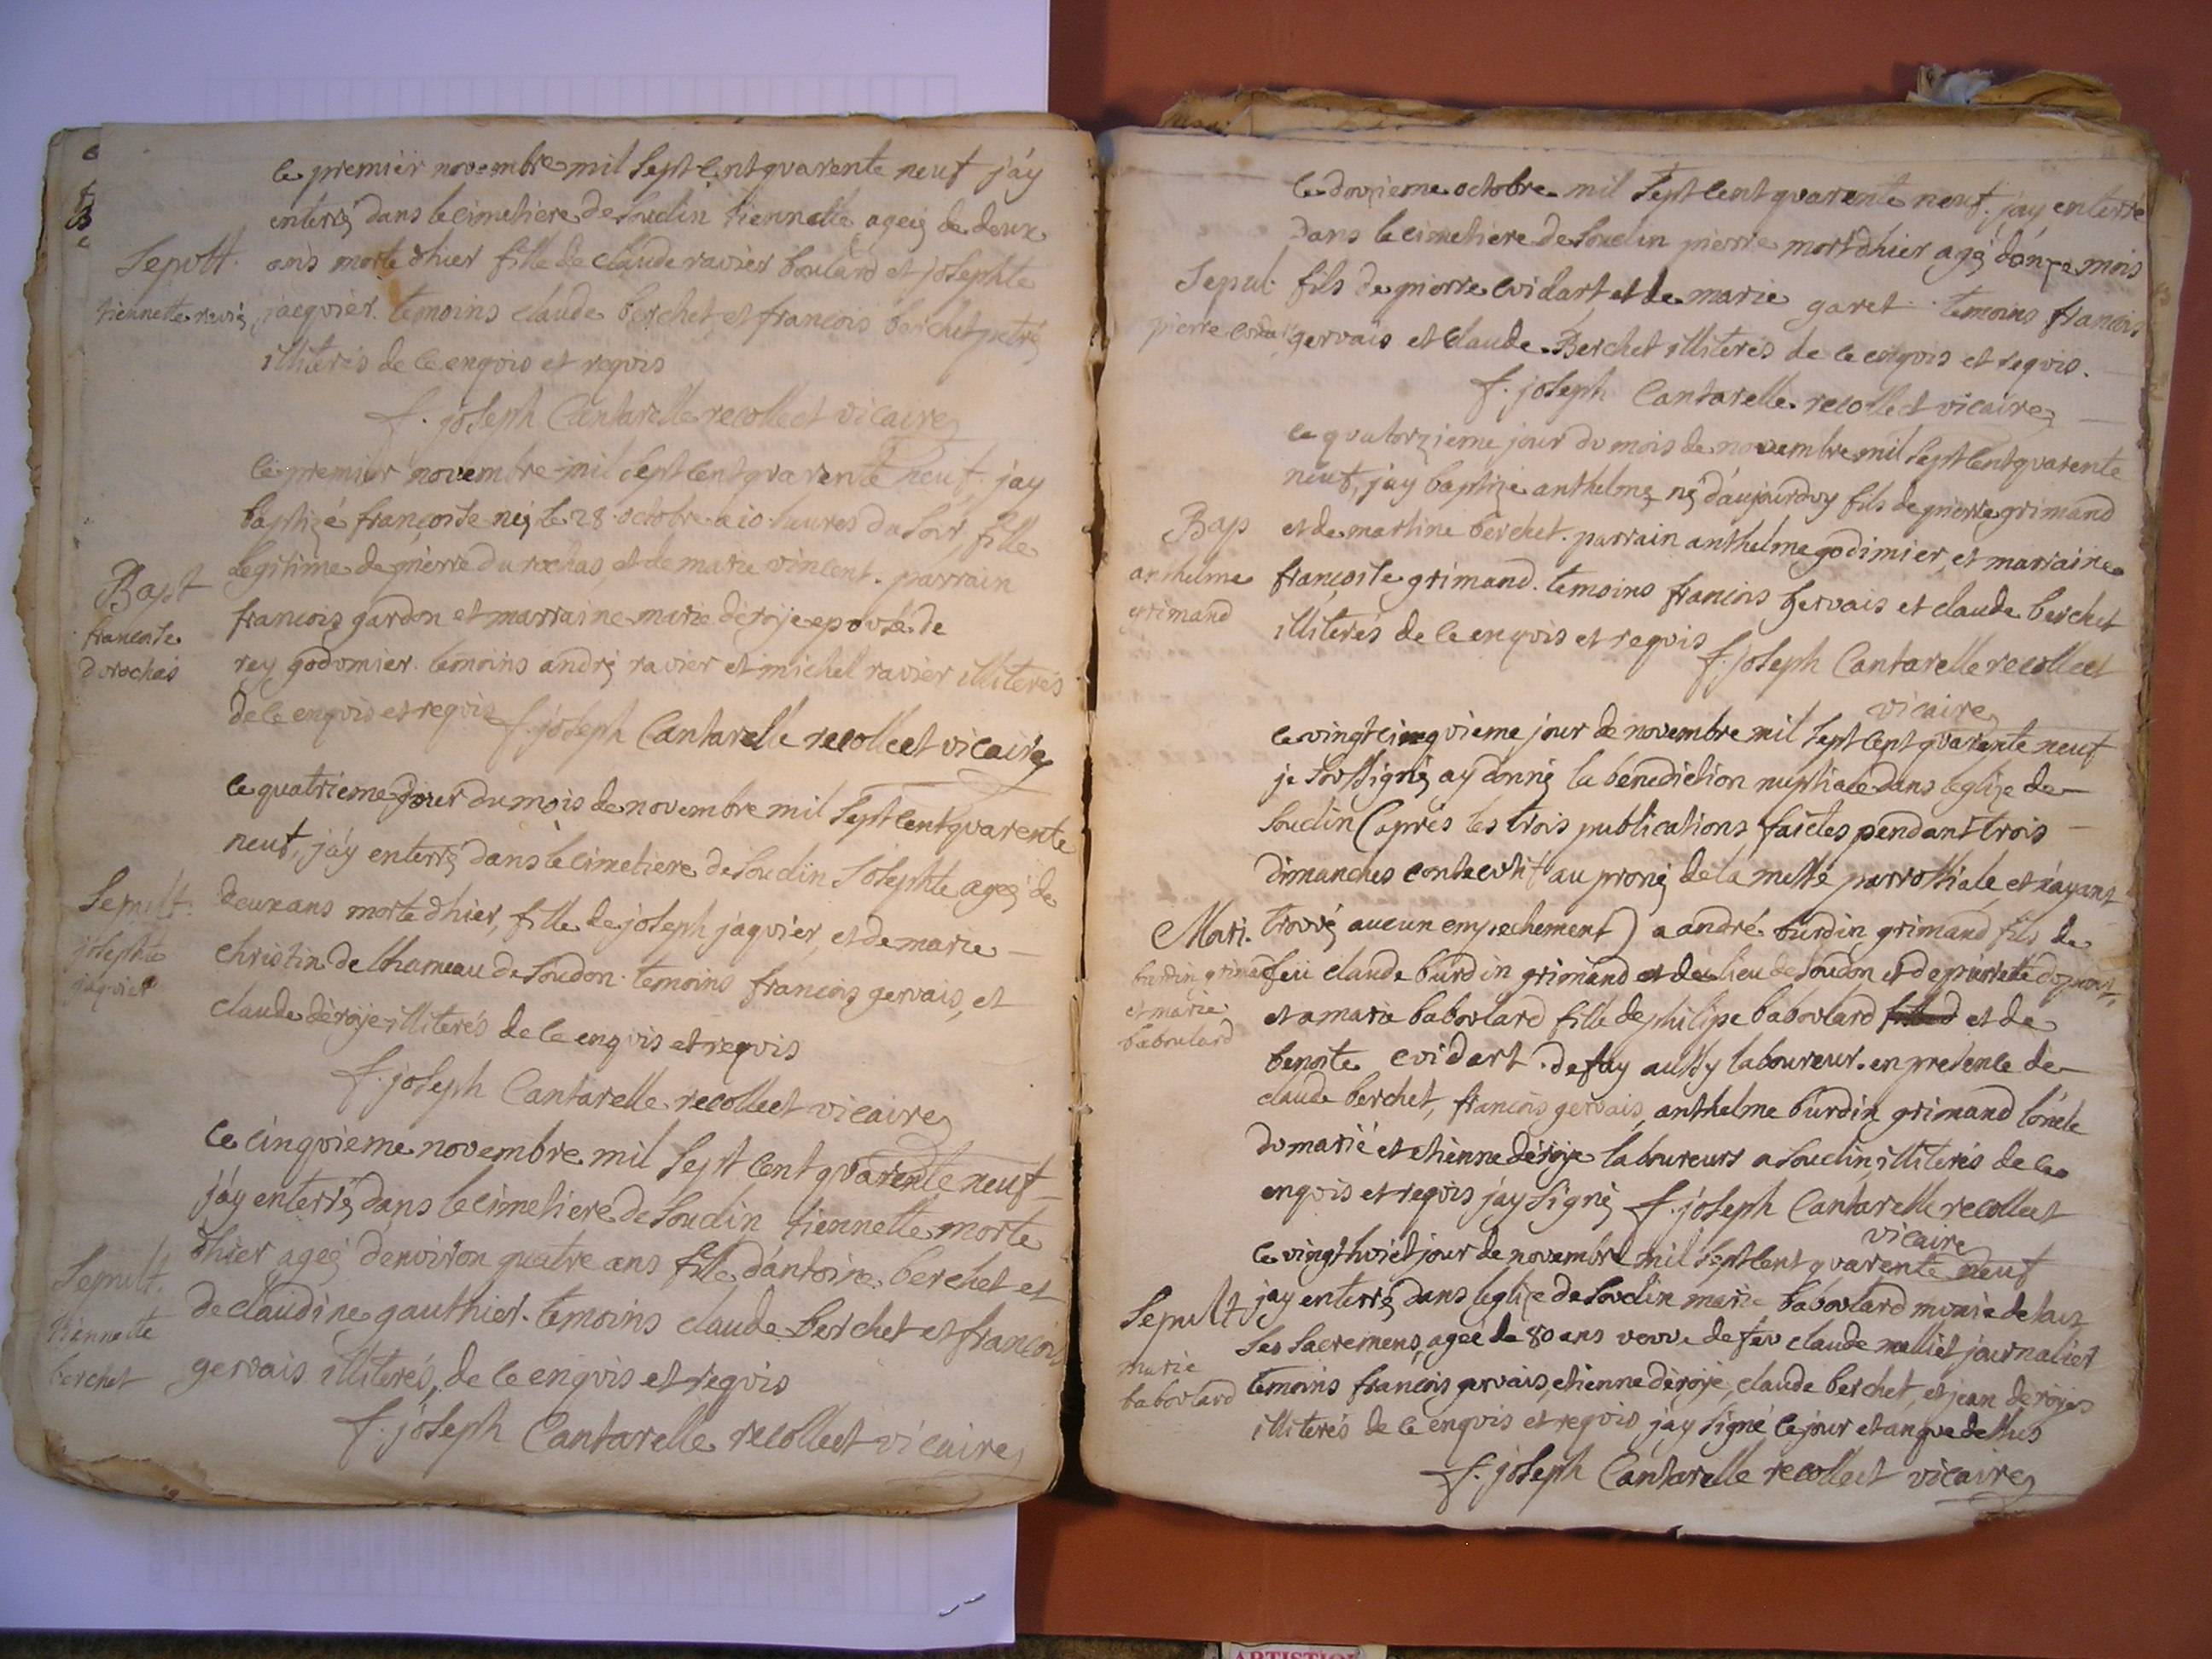 le premier novembre mil sept cent quarente neuf j'ay
enterré dans le cimetiere de soudin tiennette ageé de deux
Sepult. ans morte d'hier fille de claude ravier boulard et josephte
tiennette ravier jacquier. temoins claude berchet et francois berchet
illiterés de ce enquis et requis
f. joseph Cantarelle recollect vicaire
le premier novembre mil sept cent quarente neuf, jay
baptizé francoise neé le 28 octobre a 10 heures du soir, fille
legitime de pierre durochas, et de marie vincent. parrain
Bapt francois gardon et marraine marie déroje epouse de
francoise rey godomier. temoins andré ravier et michel ravier illiterés
durochas de ce enquis et requis f. joseph Cantarelle recollect vicaire
le quatrieme jour du mois de novembre mil sept cent quarente
neuf, j'ay enterré dans le cimetiere de soudin josephte ageé de
Sepult. deux ans morte d'hier, fille de joseph jaquier, et de marie
josephte christin de l'hameau de soudon. temoins francois gervais, et
jaquier claude déroje illiterés de ce enquis et requis
f. joseph Cantarelle recollect vicaire
le cinquieme novembre mil sept cent quarente neuf
j'ay enterré dans le cimetiere de soudin tiennette morte
Sepult. d'hier ageé d'environ quatre ans fille d'antoine berchet et
tiennette de claudine gauthier. temoins claude berchet et francois
berchet gervais illiterés, de ce enquis et requis
f. joseph Cantarelle recollect vicaire
le douzieme octobre mil sept cent quarente neuf. jay enterré
dans le cimetiere de soudin pierre mort d'hier agé d'onze mois
Sepul. fils de pierre cuidart, et de marie garet. temoins francois
pierre gervais et claude Berchet illiterés de ce enquis et requis.
f. joseph Cantarelle recollect vicaire
le quatorzieme jour du mois de novembre mil sept cent quarente
neuf, j'ay baptize anthelme né d'aujourduy fils de pierre grimand
Bap et de martine berchet. parrain anthelme godimier, et marraine
anthelme francoise grimand. temoins francois gervais et claude berchet
grimand illiterés de ce enquis et requis f. joseph Cantarelle recollect
vicaire
le vingt cinquieme jour de novembre mil sept cent quarente neuf
je soussigné ay donné la benediction nuptiale dans leglize de
soudin (aprés les trois publications faictes pendant trois
dimanches consecutif au proné de la messe parrossiale, et n'ayant
Mari. trouvé aucun empechement) a andré burdin grimand fils de
burdin grimand feu claude burdin grimand et de lieu de soudon et de pierrette dupont,
et marie et a marie baboulard fille de philipe baboulard et de
baboulard benoite cuidart. de fay aussy laboureur. en presence de
claude berchet, francois gervais, anthelme burdin grimand l'oncle
du marié et etienne déroje laboureurs a soudin, illiterés de ce
enquis et requis j'ay signé f. joseph Cantarelle recollect
vicaire
le vingt huict jour de novembre mil sept cent quarente neuf
Sepult jay enterré dans leglize de soudin marie baboulard munie de tous
les sacremens, ageé de 80 ans veuve de feu claude melliet journalier
marie temoins francois gervais, etienne déroje, claude berchet, et jean déroje
baboulard illiterés de ce enquis et requis jay signé le jour et an que dessus
f. joseph Cantarelle recollect vicaire